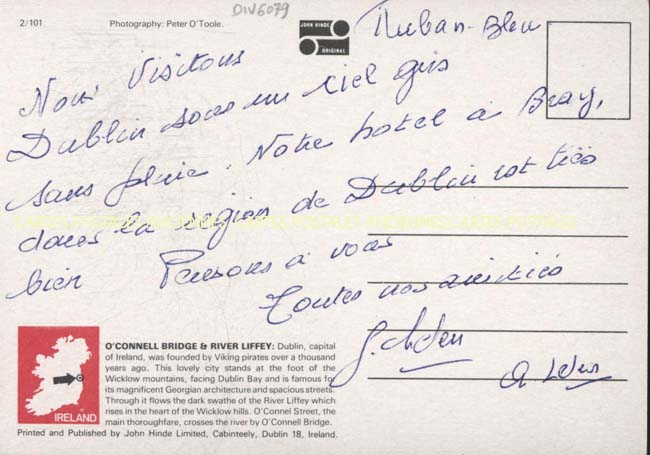 DIV6079
2/101
Photography: Peter O'Toole.
JOHN HINDE
ORIGINAL
Ruban-Bleu
Nous visitons
Dublin sous un ciel gris
sans pluie. Notre hotel à Bray,
dans la région de Dublin est très
bien Pensons à vous
Toutes nos amitiés
O'CONNELL BRIDGE & RIVER LIFFEY: Dublin, capital
of Ireland, was founded by Viking pirates over a thousand
years ago. This lovely city stands at the foot of the
Wicklow mountains, facing Dublin Bay and is famous for
its magnificent Georgian architecture and spacious streets.
Through it flows the dark swathe of the River Liffey which
rises in the heart of the Wicklow hills. O'Connel Street, the
main thoroughfare, crosses the river by O'Connell Bridge.
IRELAND
Printed and Published by John Hinde Limited, Cabinteely, Dublin 18, Ireland.